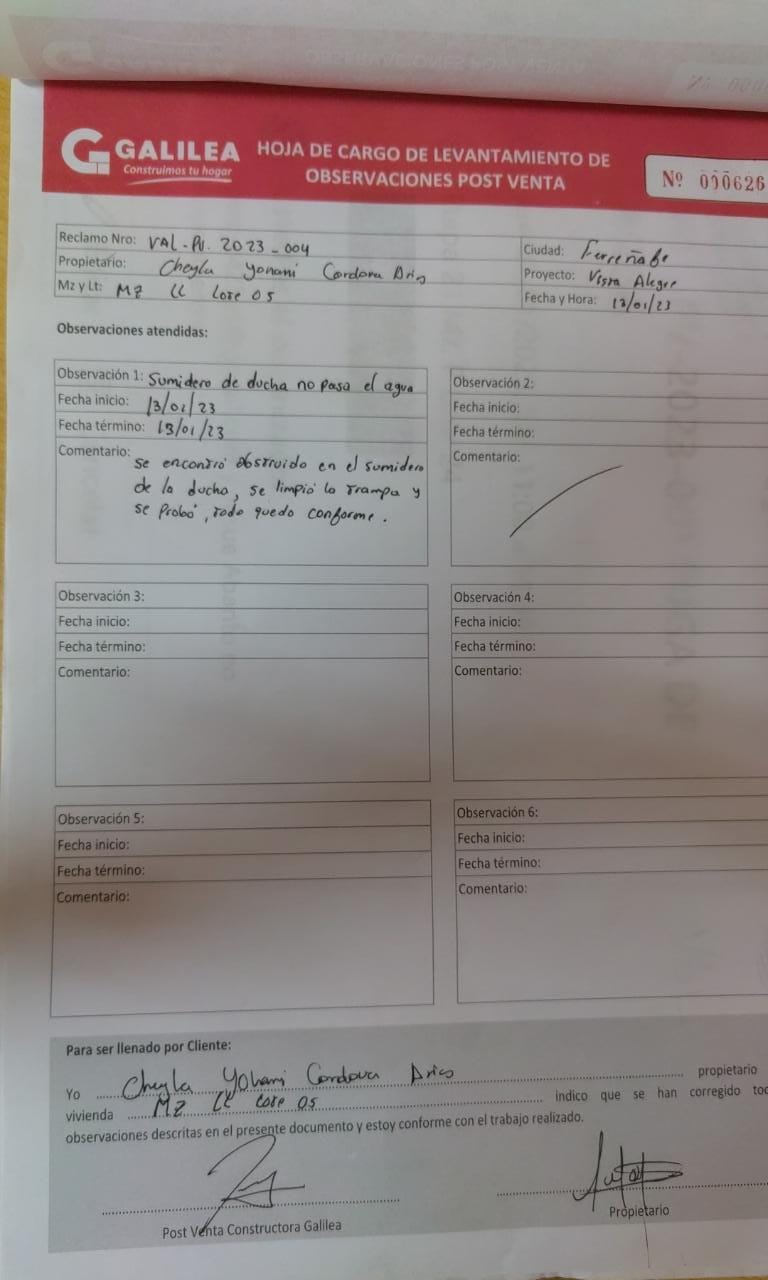 GALILEA
Construimos tu hogar
HOJA DE CARGO DE LEVANTAMIENTO DE
OBSERVACIONES POST VENTA
Nº 000626
Reclamo Nro: VAL-PV. 2023-004
Ciudad: Ferreñafe
Propietario: Cheyla Yohani Cordova
Proyecto: Vista Alegre
Mz y Lt: Mz LL Lote 05
Fecha y Hora: 13/01/23
Observaciones atendidas:
Observación 1: Sumidero de ducha no pasa el agua
Fecha inicio: 13/01/23
Fecha término: 13/01/23
Comentario: se encontró obstruido en el sumidero
de la ducha, se limpió la trampa y
se Probó, todo quedo conforme.
Observación 2:
Fecha inicio:
Fecha término:
Comentario:
Observación 3:
Fecha inicio:
Fecha término:
Comentario:
Observación 4:
Fecha inicio:
Fecha término:
Comentario:
Observación 5:
Fecha inicio:
Fecha término:
Comentario:
Observación 6:
Fecha inicio:
Fecha término:
Comentario:
Para ser llenado por Cliente:
Yo Cheyla Yohani Cordova propietario
vivienda Mz LL Lote 05 indico que se han corregido
observaciones descritas en el presente documento y estoy conforme con el trabajo realizado.
Post Venta Constructora Galilea
Propietario